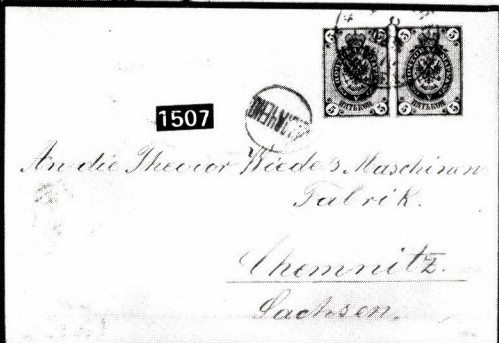 5 5 5 5
ПЯТЬ КОП. ПЯТЬ КОП.
5 5 5 5
1507
An die Theodor Wiede's Maschinen
Fabrik.
Chemnitz.
Sachsen.